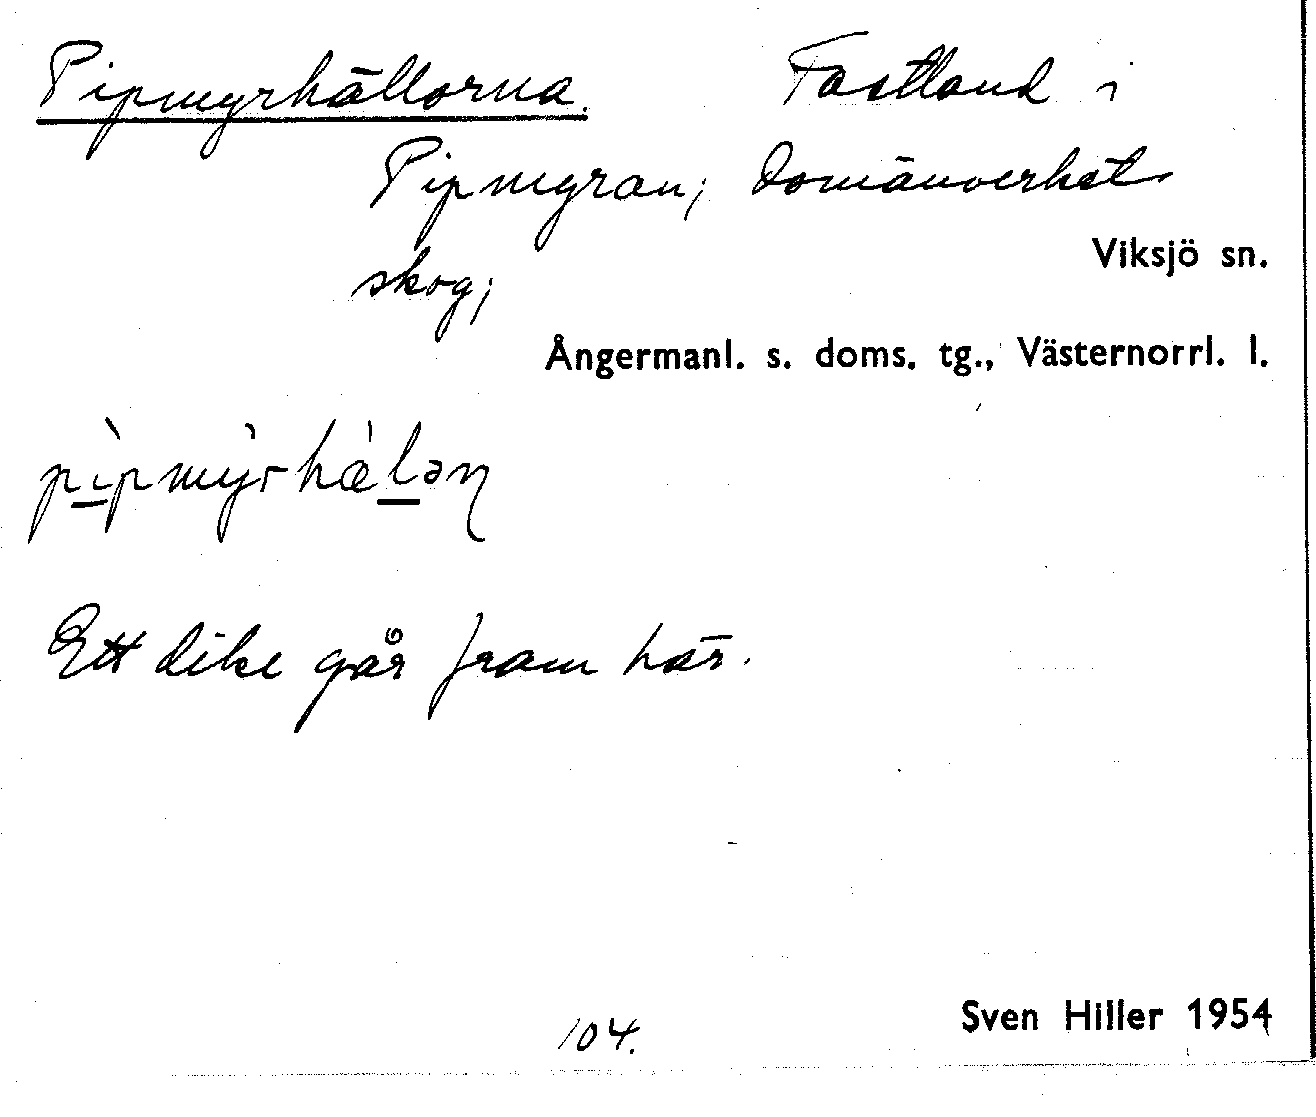 Pipmyrhällorna. Fastland i
Pipmyran; Domänverket
skog;
Viksjö sn.
Ångermanl. s. doms. tg., Västernorrl. l.
Ett dike går fram här.
104.
Sven Hiller 1954